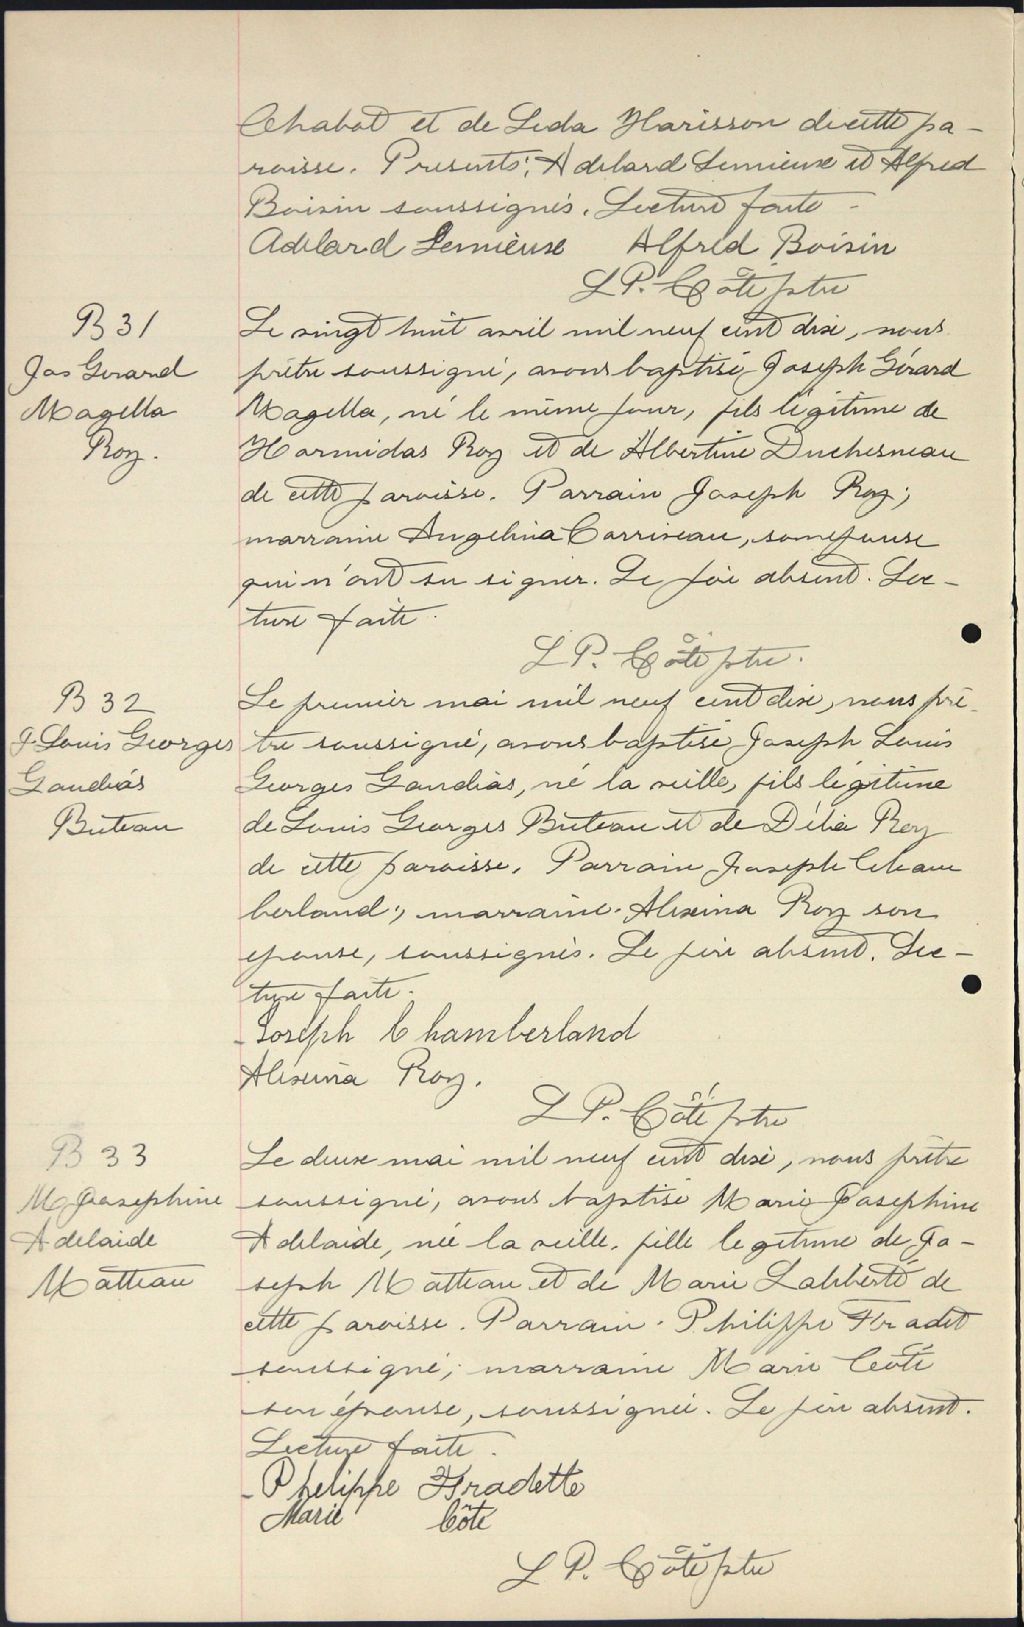 Chabot et de Leda Harisson de cette pa-
roisse. Presents: Adelard Lemieux et Alfred
Boisin soussignés. Lecture faite -
Adelard Lemieux Alfred Boisin
L P. Côté ptre
B 31
Jos Gerard
Magella
Roy.
Le vingt huit avril mil neuf cent dix, nous
prêtre soussigné, avons baptisé Joseph Gérard
Magella, né le même jour, fils légitime de
Hormidas Roy et de Albertine Duchesneau
de cette paroisse. Parrain Joseph Roy;
marraine Angelina Corriveau, son epouse
qui n'ont su signer. Le père absent. Lec-
ture faite.
L P. Côté ptre.
B 32
J. Louis Georges
Gaudiás
Buteau
Le premier mai mil neuf cent dix, nous prê-
tre soussigné, avons baptisé Joseph Louis
Georges Gaudiás, né la veille, fils légitime
de Louis Georges Buteau et de Délia Roy
de cette paroisse. Parrain Joseph Cham
berland; marraine Alexina Roy son
epouse, soussignés. Le père absent. Lec-
ture faite.
Joseph Chamberland
Alexina Roy.
L P. Côté ptre
B 33
M Josephine
Adelaide
Matteau
Le deux mai mil neuf cent dix, nous prêtre
soussigné, avons baptisé Marie Josephine
Adelaide, née la veille, fille legitime de Jo-
seph Matteau et de Marie Laliberté de
cette paroisse. Parrain Philippe Fradet
soussigné; marraine Marie Côté
son épouse, soussignée. Le père absent.
Lecture faite.
Philippe Fradette
Marie Côté
L P. Côté ptre